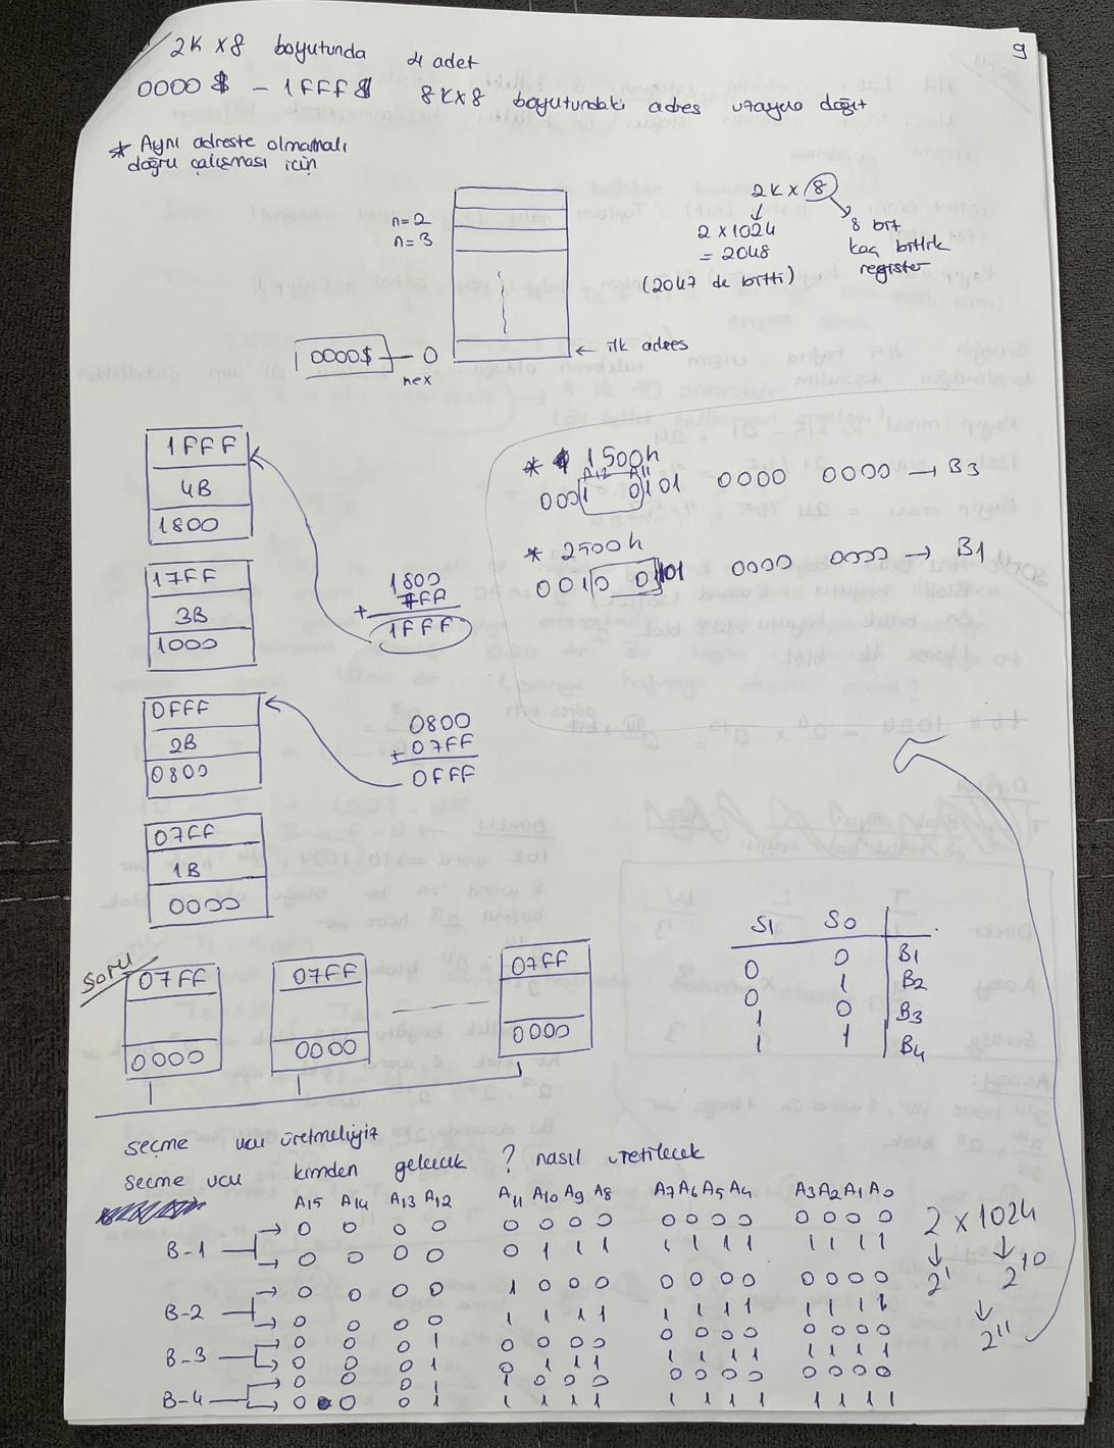 9
2K x8 boyutunda 4 adet
0000 $ - 1FFF $ 8Kx8 boyutundaki adres uzayına dağıt
* Aynı adreste olmamalı
doğru çalışması için
n=2
n=3
0000$ — 0
hex
← ilk adres
2K x 8
2 x 1024
= 2048
(2047 de bitti)
8 bit
kaç bitlik
register
1FFF
4B
1800
17FF
3B
1000
0FFF
2B
0800
07FF
1B
0000
1800
+ 7FF
1FFF
0800
+ 07FF
0FFF
* 1500h
A12 A11
0001 0101 0000 0000 → B3
* 2500h
0010 0101 0000 0000 → B1
S1 S0
0 0 B1
0 1 B2
1 0 B3
1 1 B4
soru
07FF 07FF — — — 07FF
0000 0000 0000
seçme ucu üretmeliyiz
seçme ucu kimden gelecek ? nasıl üretilecek
A15 A14 A13 A12 A11 A10 A9 A8 A7 A6 A5 A4 A3 A2 A1 A0
B-1 → 0 0 0 0 0 0 0 0 0 0 0 0 0 0 0 0
→ 0 0 0 0 0 1 1 1 1 1 1 1 1 1 1 1
B-2 → 0 0 0 0 1 0 0 0 0 0 0 0 0 0 0 0
→ 0 0 0 0 1 1 1 1 1 1 1 1 1 1 1 1
B-3 → 0 0 0 1 0 0 0 0 0 0 0 0 0 0 0 0
→ 0 0 0 1 0 1 1 1 1 1 1 1 1 1 1 1
B-4 → 0 0 0 1 1 0 0 0 0 0 0 0 0 0 0 0
→ 0 0 0 1 1 1 1 1 1 1 1 1 1 1 1 1
2 x 1024
2¹ 2¹⁰
2¹¹